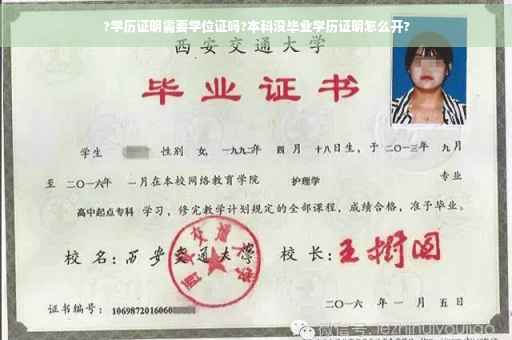 ?学历证明需要学位证吗?本科没毕业学历证明怎么开?
西安交通大学
毕业证书
学生 性别 女，一九九二年 四月 十八日生，于二〇一三年 九月
至 二〇一六年 一月在本校网络教育学院 护理学 专业
高中起点专科 学习，修完教学计划规定的全部课程，成绩合格，准予毕业。
校名：西安交通大学 校长：王树国
西安交通大学
证书编号：1069872016060
二〇一六年 一月 五日
微信号: jezhihuiyoujiao